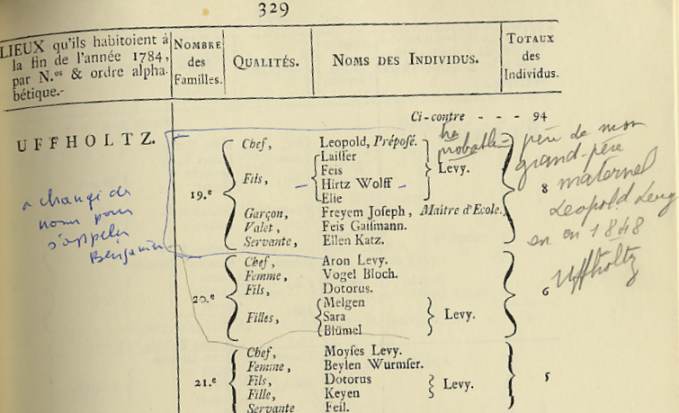 329
LIEUX qu'ils habitoient à la fin de l'année 1784, par N.os & ordre alphabétique.-
NOMBRE des Familles.
QUALITÉS.
NOMS DES INDIVIDUS.
TOTAUX des Individus.
Ci-contre - - - 94
UFFHOLTZ.
19.e
Chef, Leopold, Préposé.
Fils, Laiſſer
Feis
Hirtz Wolff
Elie
Levy.
Garçon, Freyem Joſeph, Maître d'Ecole.
Valet, Feis Gaiſmann.
Servante, Ellen Katz.
8
20.e
Chef, Aron Levy.
Femme, Vogel Bloch.
Fils, Dotorus.
Filles, Melgen
Sara
Blümel
Levy.
6
21.e
Chef, Moyſes Levy.
Femme, Beylen Wurmſer.
Fils, Dotorus
Fille, Keyen
Levy.
Servante Feil.
5
a changé de
nom pour
s'appeler
Benjamin
père de mon
grand-père
maternel
Leopold Levy
en 1848
Uffholtz